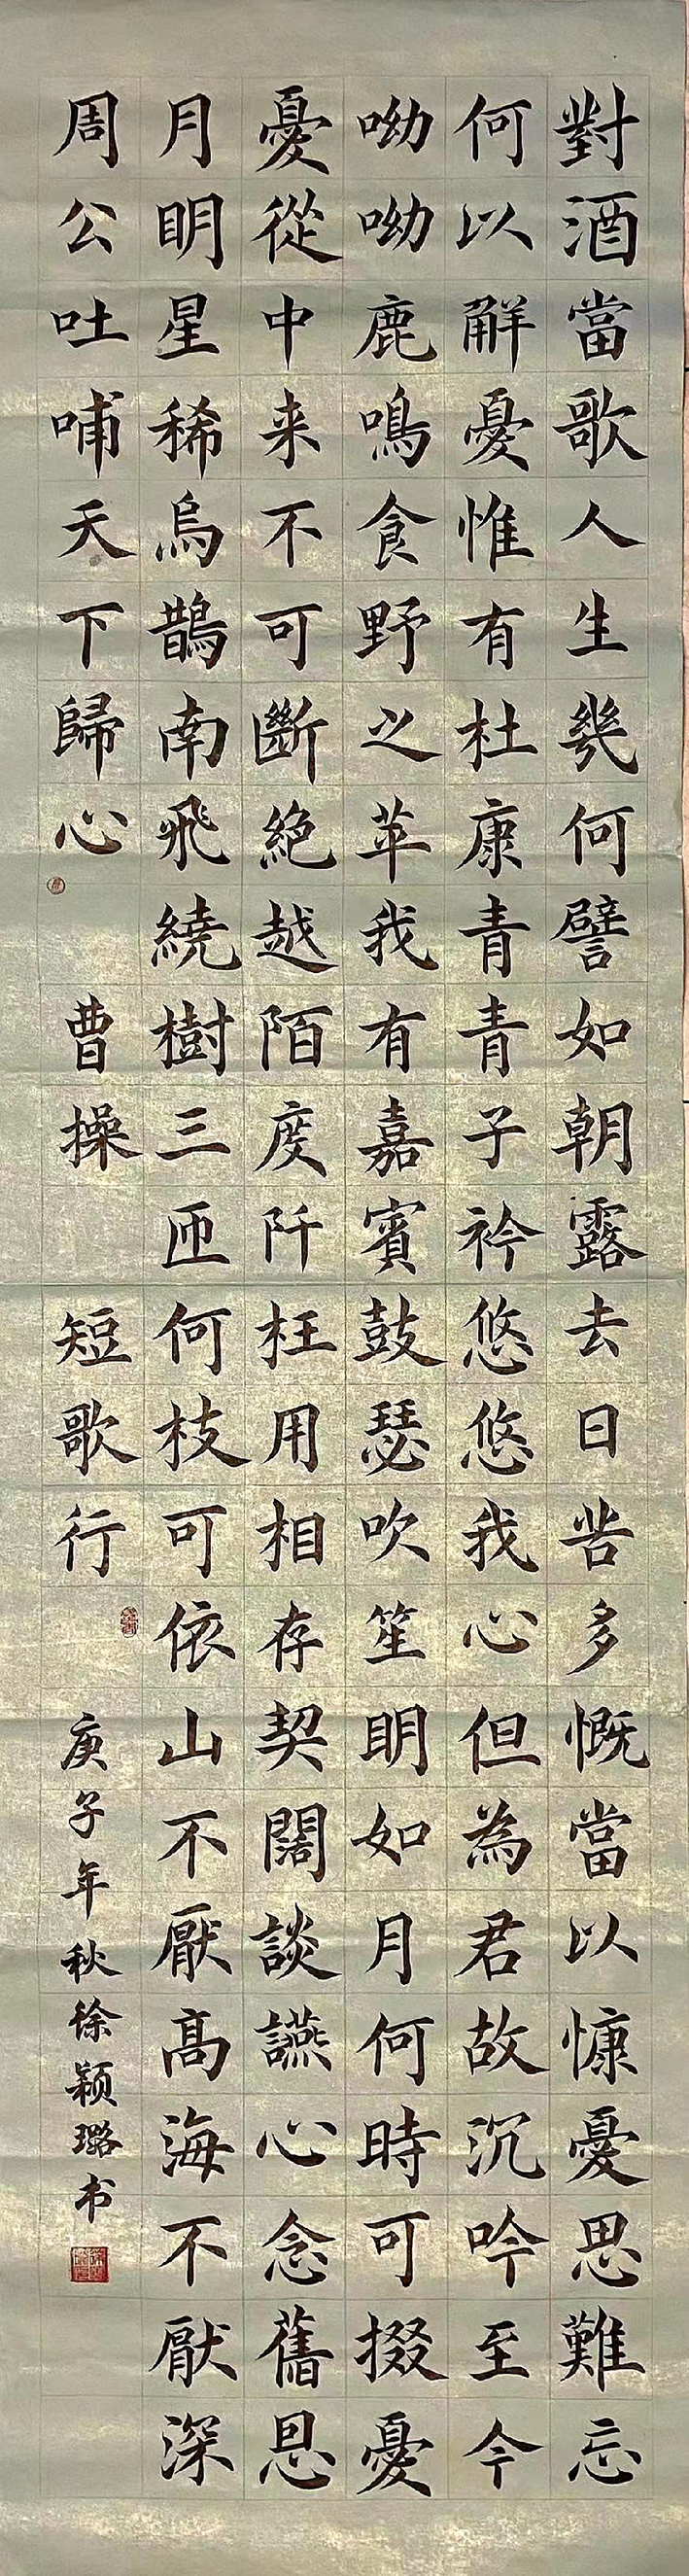 對酒當歌人生幾何譬如朝露去日苦多慨當以慷憂思難忘
何以解憂惟有杜康青青子衿悠悠我心但為君故沉吟至今
呦呦鹿鳴食野之苹我有嘉賓鼓瑟吹笙明如月何時可掇憂
憂從中来不可斷絶越陌度阡枉用相存契闊談讌心念舊恩
月明星稀烏鵲南飛繞樹三匝何枝可依山不厭高海不厭深
周公吐哺天下歸心 曹操 短歌行 庚子年秋徐颖璐书